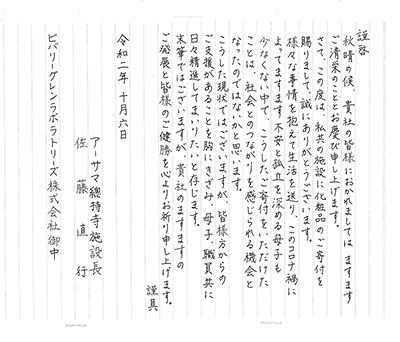 謹啓
秋晴の候、貴社の皆様におかれましては ますます
ご清栄のこととお慶び申し上げます。
さて、この度は、私共の施設に化粧品のご寄付を
賜りまして、誠にありがとうございます。
様々な事情を抱えて生活を送り、このコロナ禍に
よってますます不安と孤立を深める母子も
少なくない中で、こうしたご寄付をいただけた
ことは、社会とのつながりを感じられる機会と
なったのではないかと思います。
こうした現状ではございますが、皆様方からの
ご支援があることを胸にきざみ、母子、職員共に
日々精進してまいりたいと存じます。
末筆ではございますが、貴社のますますの
ご発展と皆様のご健勝を心よりお祈り申し上げます。
謹具
令和二年 十月六日
アーサマ總持寺施設長
佐藤直行
ビバリーグレンラボラトリーズ株式会社 御中